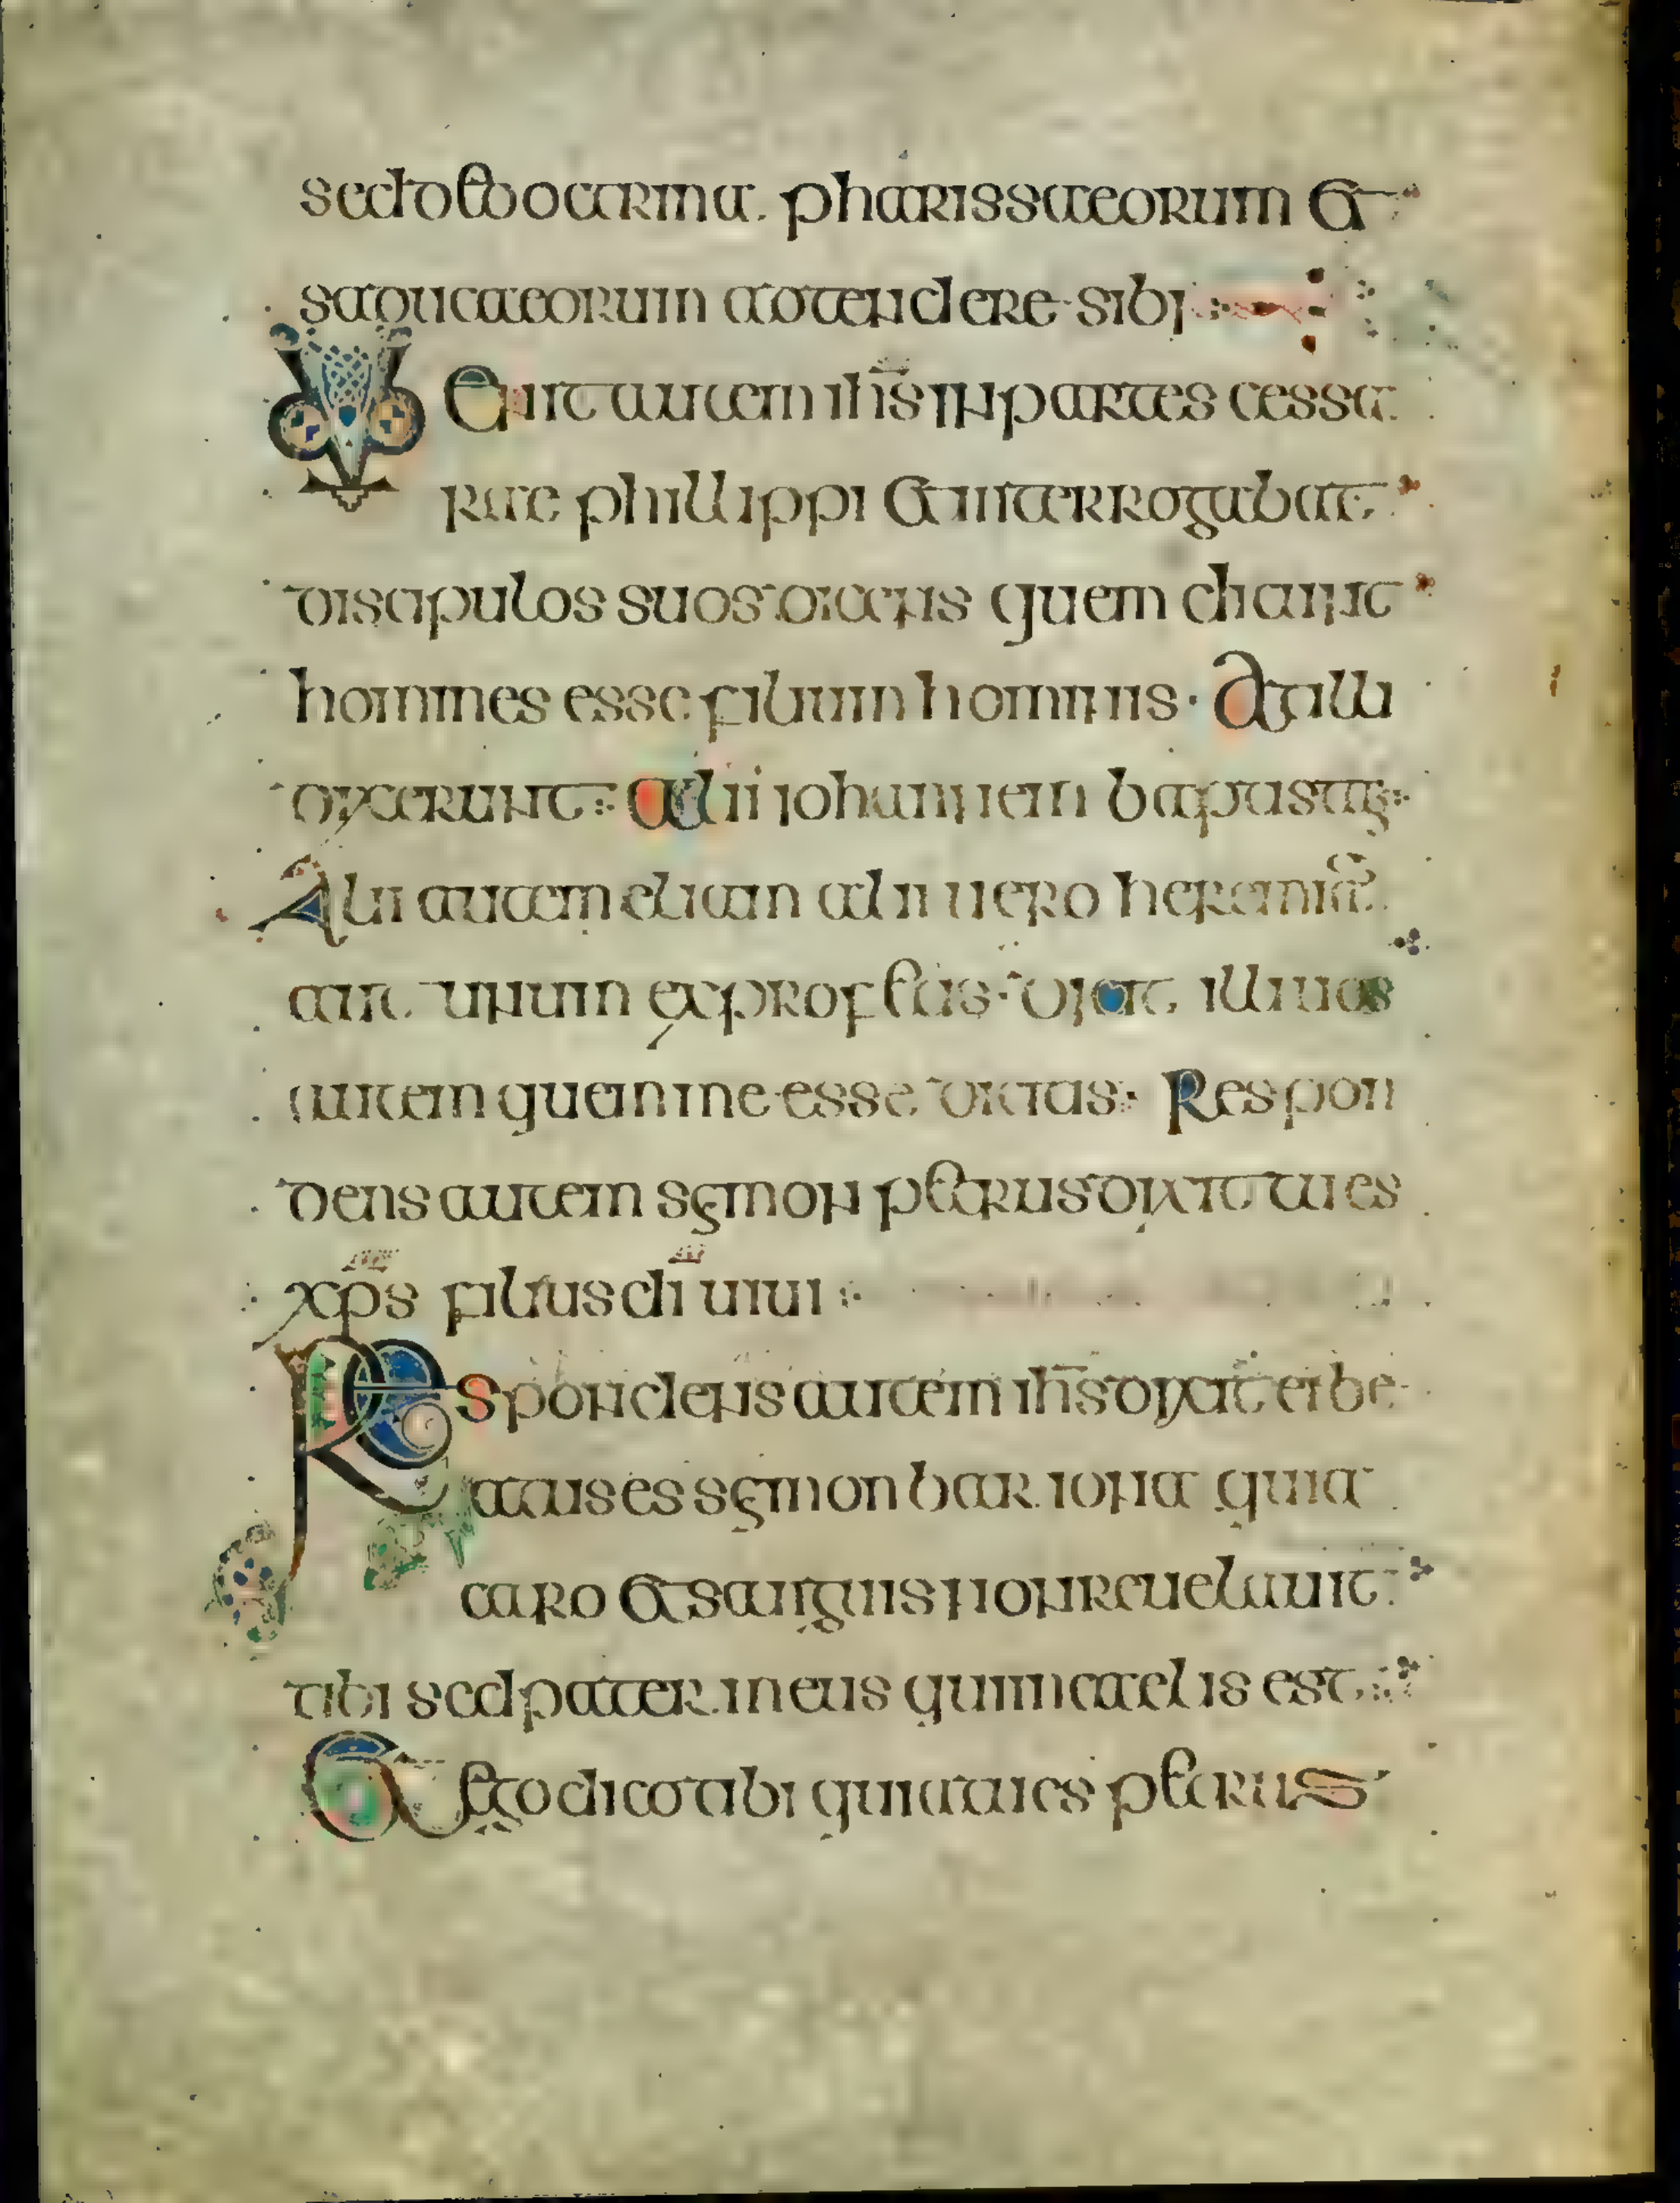 sed to & doctrina pharissaeorum et
saducaeorum adtendere sibi
Uenit autem ihs in partes cessa
riae phillippi et interrogabat
discipulos suos dicens quem dicunt
homines esse filium hominis · At illi
dixerunt Alii iohannem baptistam
Alii autem eliam alii uero heremiā
aut unum ex profetis · Dicit illi uos
autem quem me esse dicitis Respon
dens autem symon petrus dixit tu es
xps filius di uiui
Respondens autem ihs dixit ei be
atus es symon bar iona quia
caro et sanguis non reuelauit
tibi sed pater meus qui in caelis est
Et ego dico tibi quia tu es petrus